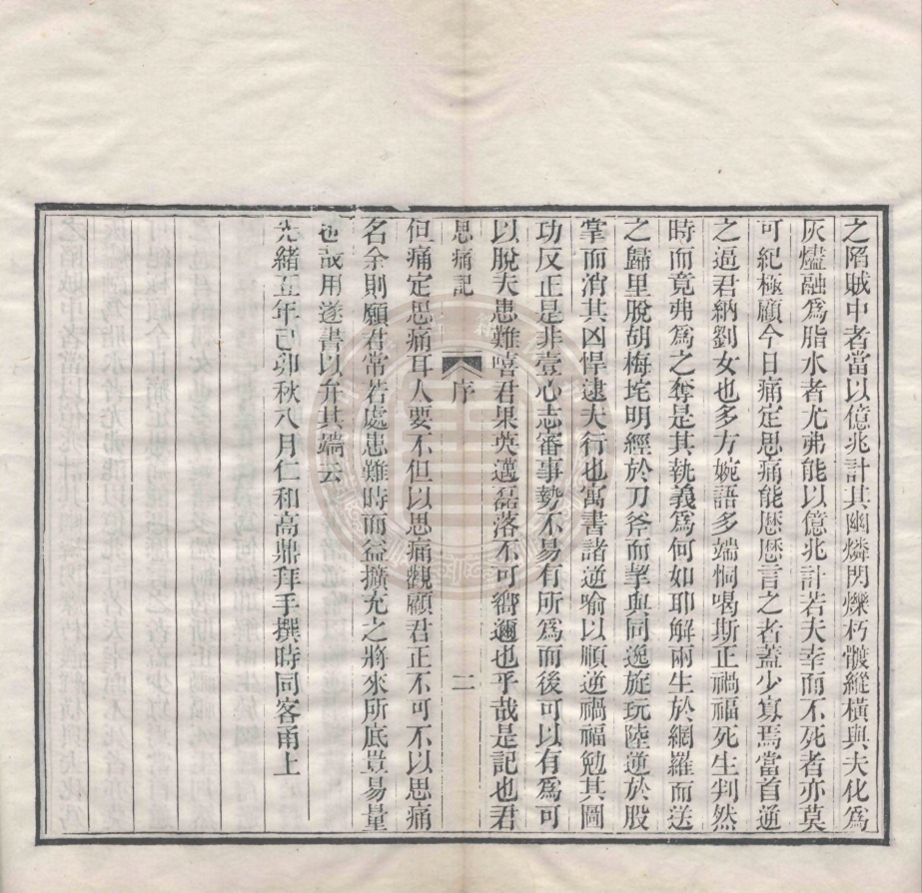 之陷賊中者當以億兆計其幽燐閃爍朽骸縱橫與夫化爲
灰燼融爲脂水者尤弗能以億兆計若夫幸而不死者亦莫
可紀極顧今日痛定思痛能歷歷言之者蓋少寡焉當首逆
之逼君納劉女也多方婉語多端恫喝斯正禍福死生判然
時而竟弗爲之奪是其執義爲何如耶解兩生於網羅而送
之歸里脫胡梅垞明經於刀斧而挈與同逸旋玩陸逆於股
掌而消其凶悍逮夫行也寓書諸逆喻以順逆禍福勉其圖
功反正是非壹心志審事勢不易有所爲而後可以有爲可
以脫夫患難嘻君果英邁磊落不可嚮邇也乎哉是記也君
思痛記 序 二
但痛定思痛耳人要不但以思痛觀顧君正不可不以思痛
名余則願君常若處患難時而益擴充之將來所底豈易量
也哉用遂書以弁其端云
光緒五年己卯秋八月仁和高鼎拜手撰時同客甬上